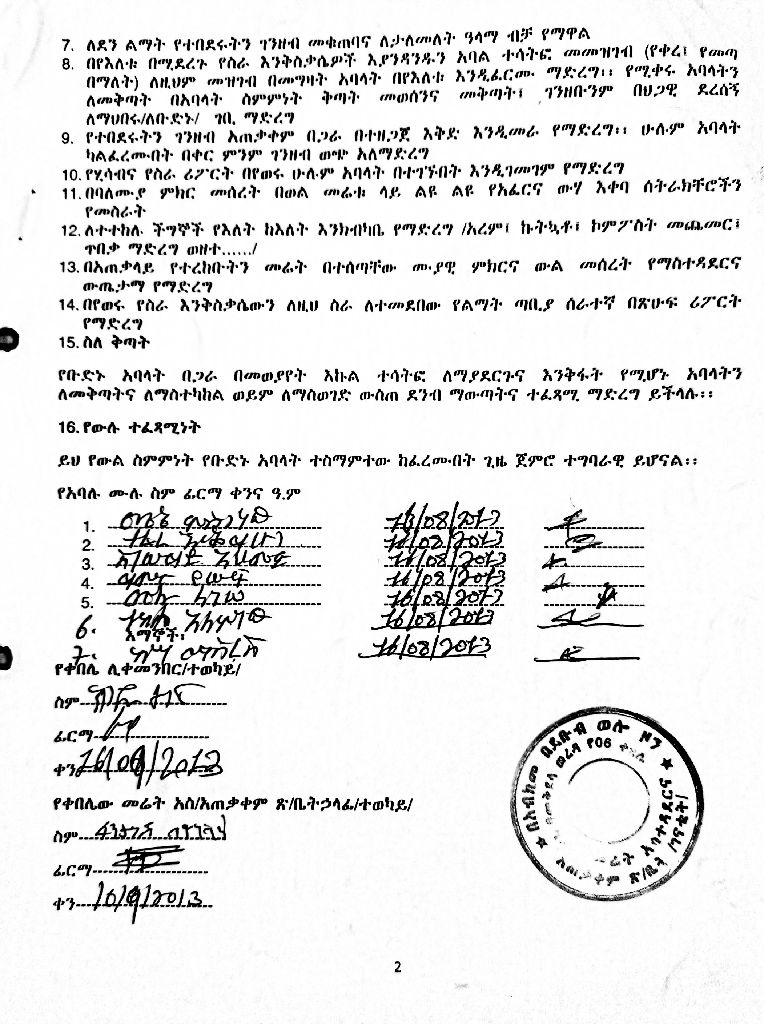 7. ለደን ልማት የተበደሩትን ገንዘብ መቁጠባና ለታለመለት ዓላማ ብቻ የማዋል
8. በየእለቱ በሚደረጉ የስራ እንቅስቃሴዎች እያንዳንዱን አባል ተሳትፎ መመዝገብ (የቀረ፣ የመጣ
በማለት) ለዚህም መዝገብ በመግዛት አባላት በየእለቱ እንዲፈርሙ ማድረግ፡፡ የሚቀሩ አባላትን
ለመቅጣት በአባላት ስምምነት ቅጣት መወሰንና መቅጣት፣ ገንዘቡንም በህጋዊ ደረሰኝ
ለማህበሩ/ለቡድኑ/ ገቢ ማድረግ
9. የተበደሩትን ገንዘብ አጠቃቀም በጋራ በተዘጋጀ እቅድ እንዲመራ የማድረግ፡፡ ሁሉም አባላት
ካልፈረሙበት በቀር ምንም ገንዘብ ወጭ አለማድረግ
10. የሂሳብና የስራ ሪፖርት በየወሩ ሁሉም አባላት በተገኙበት እንዲገመገም የማድረግ
11. በባለሙያ ምክር መሰረት በወል መሬቱ ላይ ልዩ ልዩ የአፈርና ውሃ እቀባ ስትራክቸሮችን
የመስራት
12. ለተተከሉ ችግኞች የእለት ከእለት እንክብካቤ የማድረግ /አረም፣ ኩትኳቶ፣ ኮምፖስት መጨመር፣
ጥበቃ ማድረግ ወዘተ....../
13. በአጠቃላይ የተረከቡትን መሬት በተሰጣቸው ሙያዊ ምክርና ውል መሰረት የማስተዳደርና
ውጤታማ የማድረግ
14. በየወሩ የስራ እንቅስቃሴውን ለዚህ ስራ ለተመደበው የልማት ጣቢያ ሰራተኛ በጽሁፍ ሪፖርት
የማድረግ
15. ስለ ቅጣት
የቡድኑ አባላት በጋራ በመወያየት እኩል ተሳትፎ ለማያደርጉና እንቅፋት የሚሆኑ አባላትን
ለመቅጣትና ለማስተካከል ወይም ለማስወገድ ውስጠ ደንብ ማውጣትና ተፈጻሚ ማድረግ ይችላሉ፡፡
16. የውሉ ተፈጻሚነት
ይህ የውል ስምምነት የቡድኑ አባላት ተስማምተው ከፈረሙበት ጊዜ ጀምሮ ተግባራዊ ይሆናል፡፡
የአባሉ ሙሉ ስም ፊርማ ቀንና ዓ.ም
1. 16/08/2013
2. 16/08/2013
3. 16/08/2013
4. 16/08/2013
5. 16/08/2013
6. 16/08/2013
እማኞች፡
7. 16/08/2013
የቀበሌ ሊቀመንበር/ተወካይ/
ስም
ፊርማ
ቀን 16/09/2013
የቀበሌው መሬት አስ/አጠቃቀም ጽ/ቤትኃላፊ/ተወካይ/
ስም
ፊርማ
ቀን 10/9/2013
በአብክመ በደቡብ ወሎ ዞን
ወረዳ የ06 ቀበሌ
መሬት አስተዳደርና
አጠቃቀም ጽ/ቤት
2